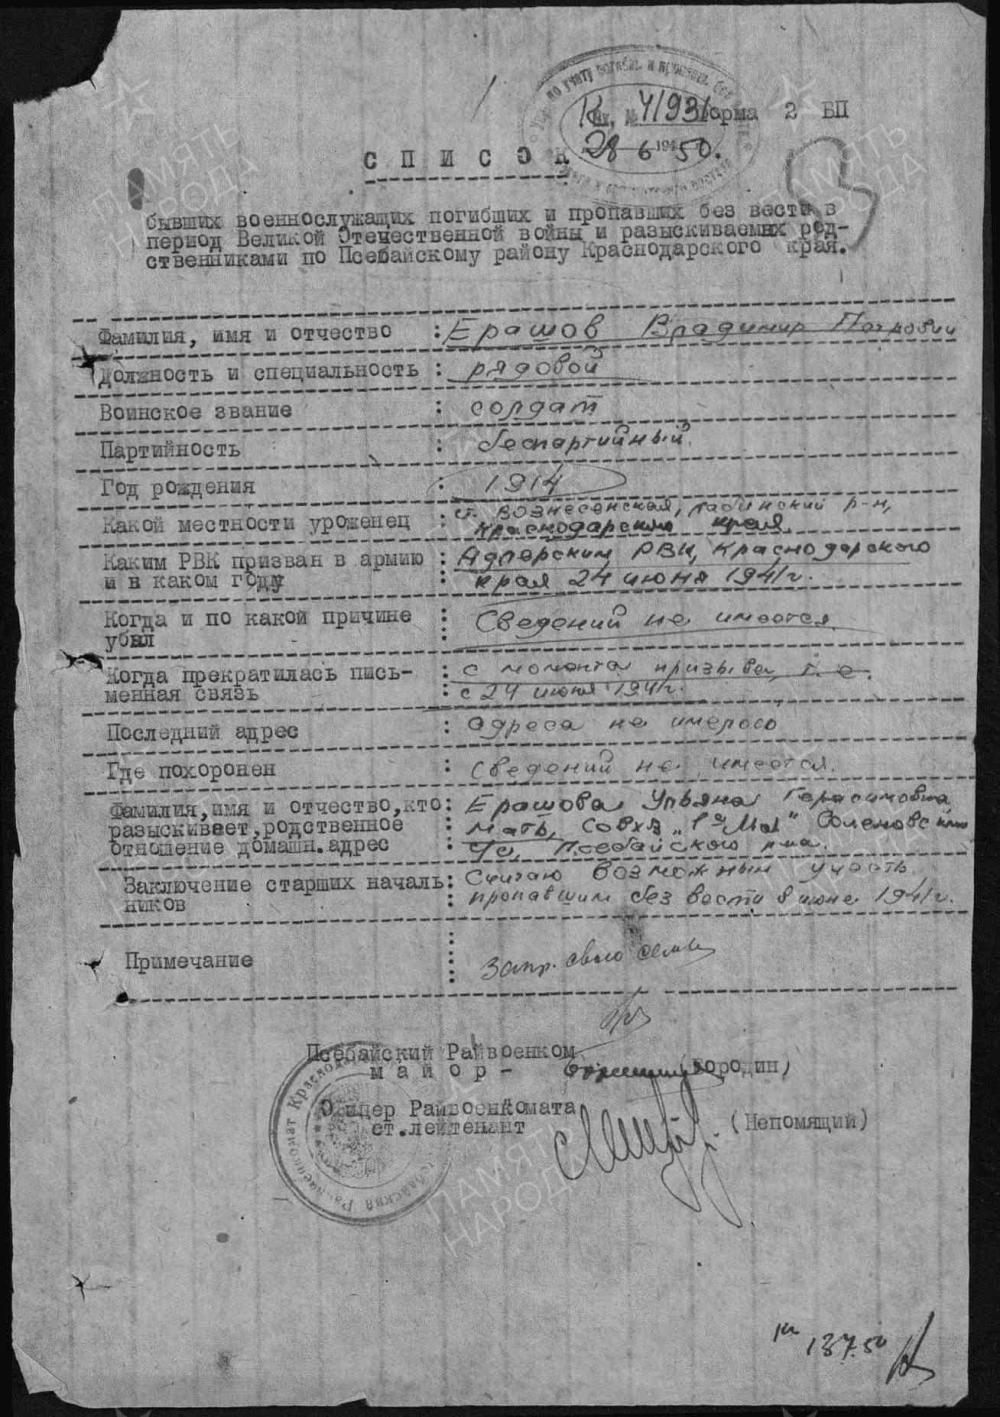 Вх. № 41931
28 6 1950.
Форма 2 БП
С П И С О К
бывших военнослужащих погибших и пропавших без вести в
период Великой Отечественной войны и разыскиваемых род-
ственниками по Псебайскому району Краснодарского края.
Фамилия, имя и отчество : Ерашов Владимир Петрович
Должность и специальность : рядовой
Воинское звание : солдат
Партийность : беспартийный
Год рождения : 1914
Какой местности уроженец : ст. Вознесенская, Лабинский р-н,
Краснодарский края
Каким РВК призван в армию : Адлерским РВК, Краснодарского
и в каком году : края 24 июня 1941г.
Когда и по какой причине : Сведений не имеется
убыл
Когда прекратилась пись- : с момента призыва, т. е.
менная связь : с 24 июня 1941г.
Последний адрес : адреса не имелось
Где похоронен : сведений не имеется.
Фамилия, имя и отчество, кто : Ерашова Ульяна Герасимовна
разыскивает, родственное : мать, совхз „1е Мая"
отношение домашн. адрес : с/с, Псебайского р-на.
Заключение старших началь- : Считаю возможным учесть
ников : пропавшим без вести в июне 1941г.
Примечание
Псебайский Райвоенком
майор - (Бородин)
Офицер Райвоенкомата
ст. лейтенант (Непомящий)
ПАМЯТЬ
НАРОДА